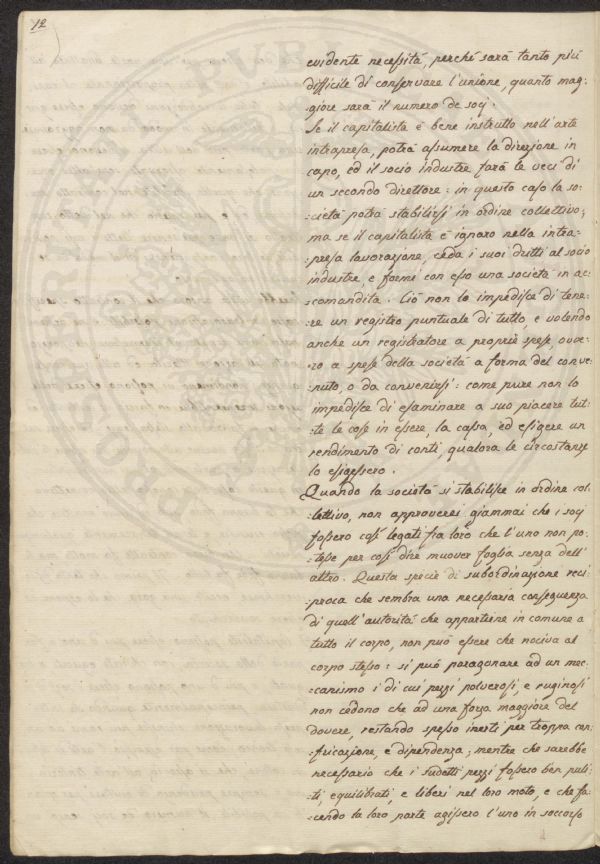 12
evidente necessitá, perché sará tanto piú
difficile di conservare l'unione, quanto mag:
giore sará il numero de socj.
Se il capitalista é bene instrutto nell'arte
intrapresa, potrá assumere la direzione in
capo, ed il socio industre fará le veci di
un secondo direttore: in questo caso la so:
cietá potrá stabilirsi in ordine collettivo;
ma se il capitalista é ignaro nella intra=
=presa lavorazione, ceda i suoi dritti al socio
industre, e formi con esso una societá in ac=
=comandita. Ció non lo impedisce di tene=
=re un registro puntuale di tutto, e volendo
anche un registratore a proprie spese, ovve=
ro a spese della societá a forma del conve=
nuto, o da convenirsi: come pure non lo
impedisce di esaminare a suo piacere tut=
=te le cose in essere, la cassa, ed esigere un
rendimento di conti, qualora le circostanze
lo esigessero.
Quando la societá si stabilisce in ordine col=
=lettivo, non approverei giammai che i socj
fossero cosí legati fra loro che l'uno non po=
=tesse per cosí dire muover foglia senza dell'
altro. Questa specie di subordinazione reci=
proca che sembra una necessaria conseguenza
di quell'autoritá che appartiene in comune a
tutto il corpo, non puó essere che nociva al
corpo stesso: si puó paragonare ad un mec=
=canismo i di cui pezzi polverosi, e ruginosi
non cedono che ad una forza maggiore del
dovere, restando spesso inerti per troppa con=
=fricazione, e dipendenza; mentre che sarebbe
necessario che i sudetti pezzi fossero ben puli=
=ti, equilibrati, e liberi nel loro moto, e che fa=
=cendo la loro parte agissero l'uno in soccorso